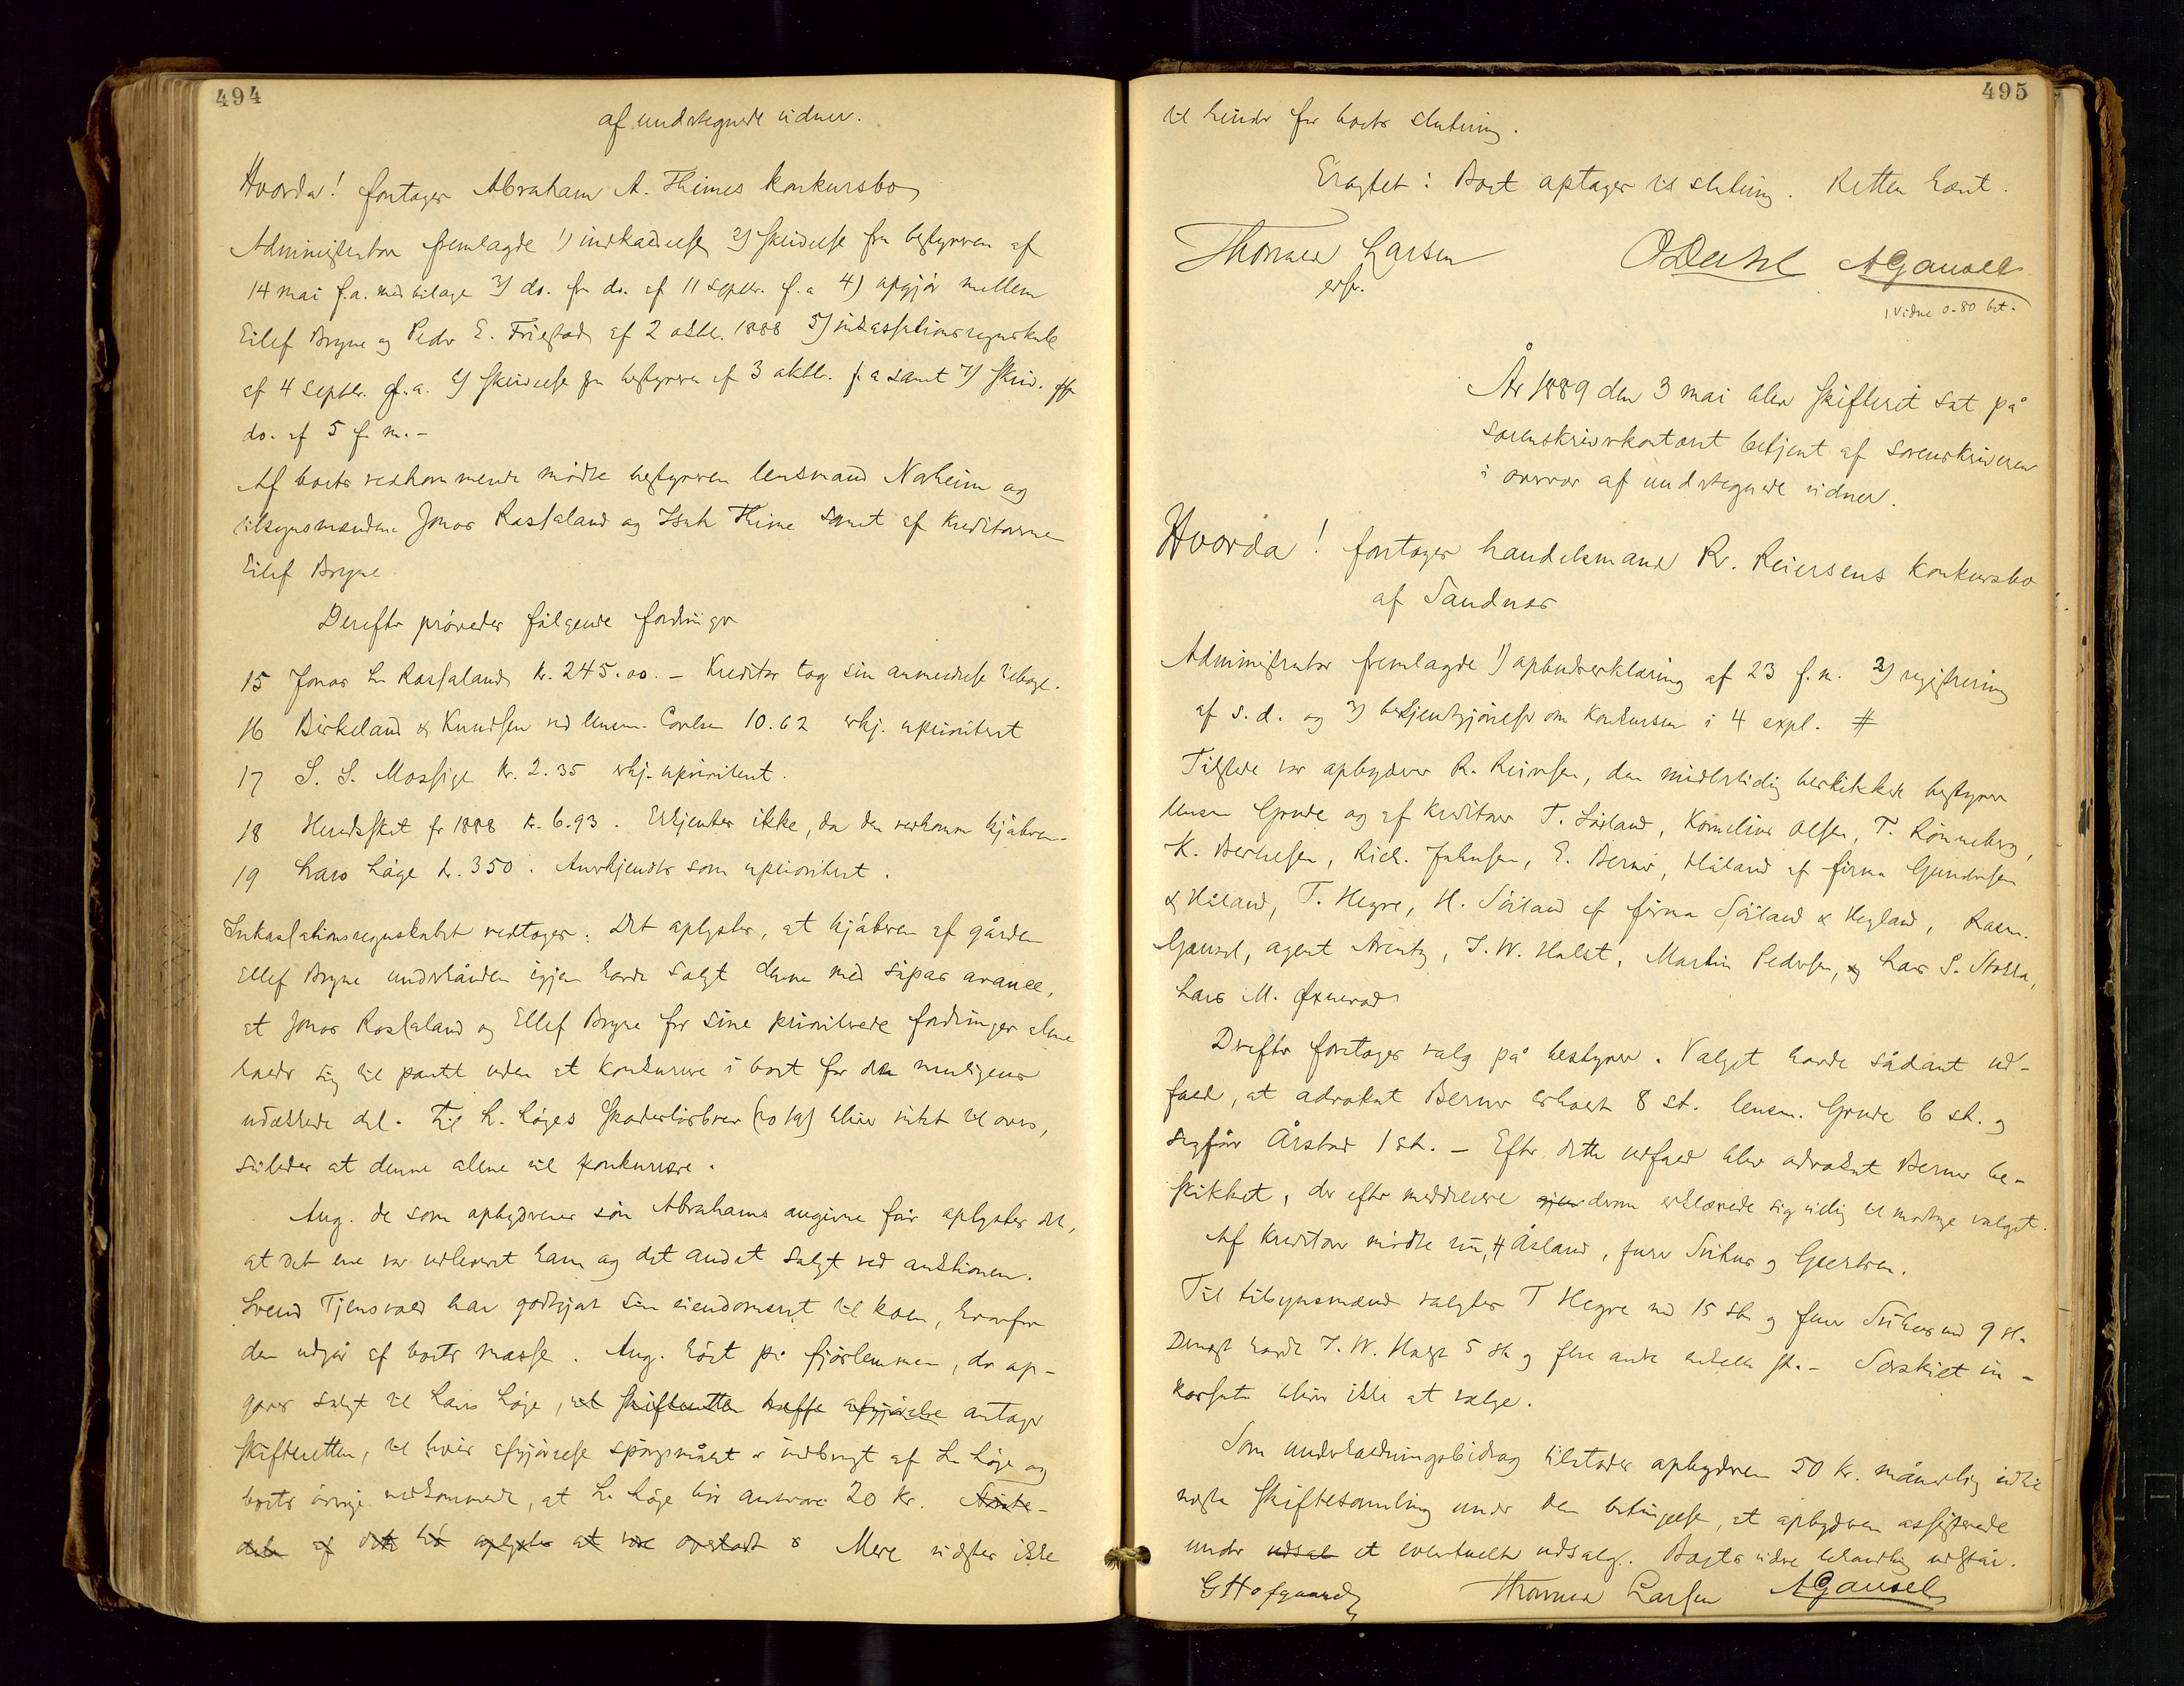 494
af undertegnede vidner.
Hvorda! foretages Abraham A. Himes konkursbo
Administrator fremlagde 1) indkaldelse 2) skrivelse fra bestyreren af
14 mai f.a. med bilage 3) do. fra do. af 11 septbr. f.a 4) opgjør mellem
Eilef Bryne og Peder E. Friestad af 2 oktbr. 1888 5) inkassationsregnskab
af 4 septbr. f.a. 6) skrivelse fra bestyreren af 3 oktbr. f.a samt 7) skriv. fra
do. af 5 f. m. -
Af boets vedkommende mødte bestyreren lensmand Naheim og
tilsynsmændene Jonas Rossaland og Isak Hime samt af kreditorerne
Eilef Bryne
Derefter prøvedes følgende fordringer
15 Jonas L. Rossaland kr. 245.00. - Kreditor tog sin anmeldelse tilbage.
16 Birkeland & Knudsen ved lensm. 10.62 erkj. uprioritert
17 S. S. Mossige kr. 2.35 erkj. uprioritert.
18 Herredsskat for 1888 kr. 6.93. Erkjendtes ikke, da den vedkommer kjøberen.
19 Lars Låge kr. 350. Anerkjendtes som uprioritert.
Inkassationsregnskabet vedtoges. Det oplystes, at kjøberen af gården
Ellef Bryne underhånden igjen havde solgt denne med såpas avance,
at Jonas Rossaland og Ellef Bryne for sine prioriterede fordringer alene
holder sig til pantet uden at konkurrere i boet for den muligens
udækkede del. Til L. Låges skadesløsbrev (10/9) bliver intet til overs,
således at denne alene vil konkurrere.
Ang. de som opbyderens søn Abrahams angivne får oplystes det,
at det ene var udleveret ham og det andet solgt ved auktionen.
Svend Tjensvold har godtgjort sin eiendomsret til koen, hvorfor
den udgår af boets masse. Ang. høet på fjøslemmen, der op-
gaves solgt til Lars Låge, vil skifteretten træffe afgjørelse antager
skifteretten, til hvis afgjørelse spørgsmålet er indbragt af L. Låge og
boets øvrige vedkommende, at L. Låge bør ansvare 20 kr.
at være Mere vidstes ikke
495
til hinder for boets slutning.
Eragtet: Boet optages til slutning. Retten hævet.
Thomas Larsen
O Dahl
A Gausel
1 Vidne 0-80 bet.
År 1889 den 3 mai blev skifteret sat på
sorenskriverkontoret betjent af sorenskriveren
i overvær af undertegnede vidner.
Hvorda! foretages handelsmand R. Reiersens konkursbo
af Sandnes
Administrator fremlagde 1) opbudserklæring af 23 f.m. 2) registrering
af s.d. og 3) bekjendtgjørelse om konkursen i 4 expl. #
Tilstede var opbyderen R. Reiersen, den midlertidig beskikkede bestyrer
lensm Grude og af kreditorer T. Søiland, Kornelius Olsen, T. Rønneberg,
K. Berthelsen, Rich. Johnsen, E. Berner, Håland af firma Gundersen
& Håland, T. Hegre, H. Søiland af firma Søiland & Hegland, Rasm.
Gausel, agent Arentz, J. W. Halst, Martin Pedersen, og Lars S. Stokka,
Lars M. Øxnevad
Derefter foretages valg på bestyrer. Valget havde sådant ud-
fald, at advokat Berner erholdt 8 st. lensm. Grude 6 st. og
sagfører Årstad 1 st. - Efter dette udfald blev advokat Berner be-
skikket, der efter meddelelse derom erklærede sig villig til modtage valget.
Af kreditorer mødte nu, H Åsland, fuer Svihus og Gjertsen.
Til tilsynsmænd valgtes T Hegre med 15 st og fuer Svihus med 9 st.
Dernæst havde J. W. Halst 5 st og flere andre enkelte st. - Særskilt in-
kassator blir ikke at vælge.
Som underholdningsbidrag tilståes opbyderen 50 kr. månedlig indtil
næste skiftesamling under den betingelse, at opbyderen assisterede
under udsal et eventuelt udsalg. Boets videre behandling udstår.
G Hofgaard
Thomas Larsen
A Gausel